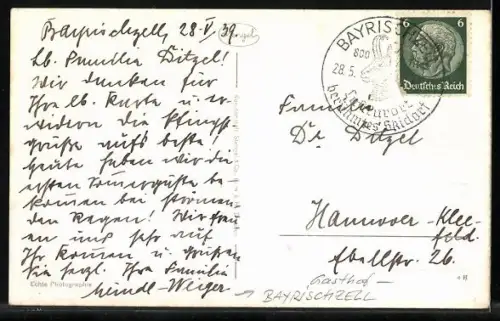 Bayrischzell, 28. V. 39.
Lb. Familie Ditzel!
Wir danken für
Ihre lb. Karte u. er-
widern die Pfingst-
grüße aufs beste!
Heute haben wir die
ersten Sommergäste be-
kommen bei strömen-
den Regen! Wir freu-
en uns sehr auf
Ihr Kommen u. grüßen
Sie herzl. Ihre Familie
Meindl-Weiger
Echte Photographie
BAYRISCHZELL
800
28.5.
Luftkurort
berühmtes Skidorf
6 6
Deutsches Reich
Familie
Dr. Ditzel
Hannover-Klee-
feld.
Ebellstr. 26.
Gasthof
BAYRISCHZELL